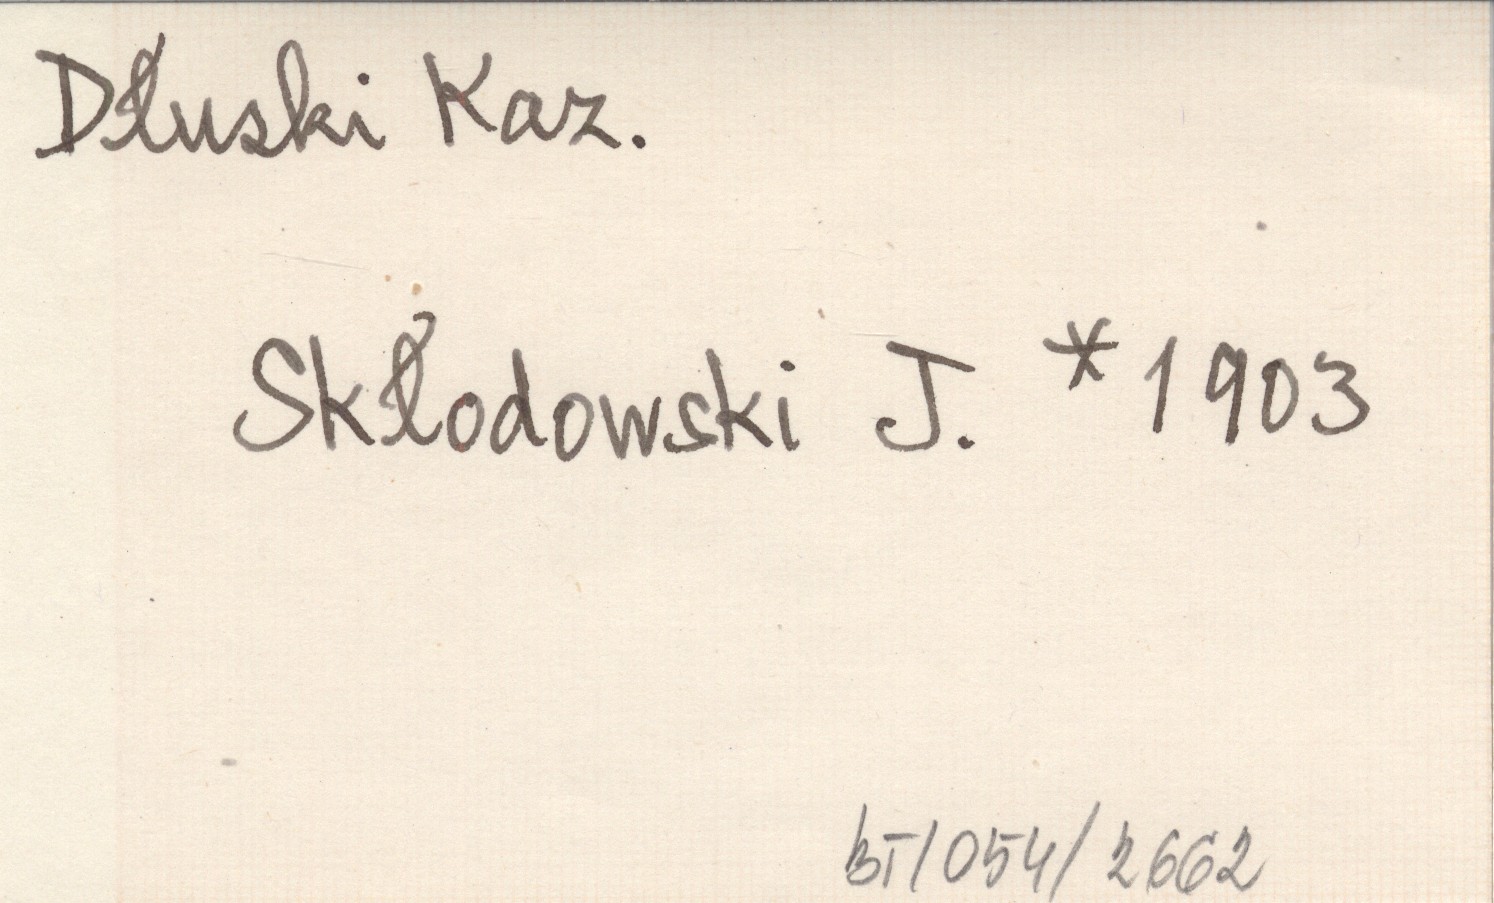 Dłuski Kaz.
Skłodowski J. *1903
BT/054/2662